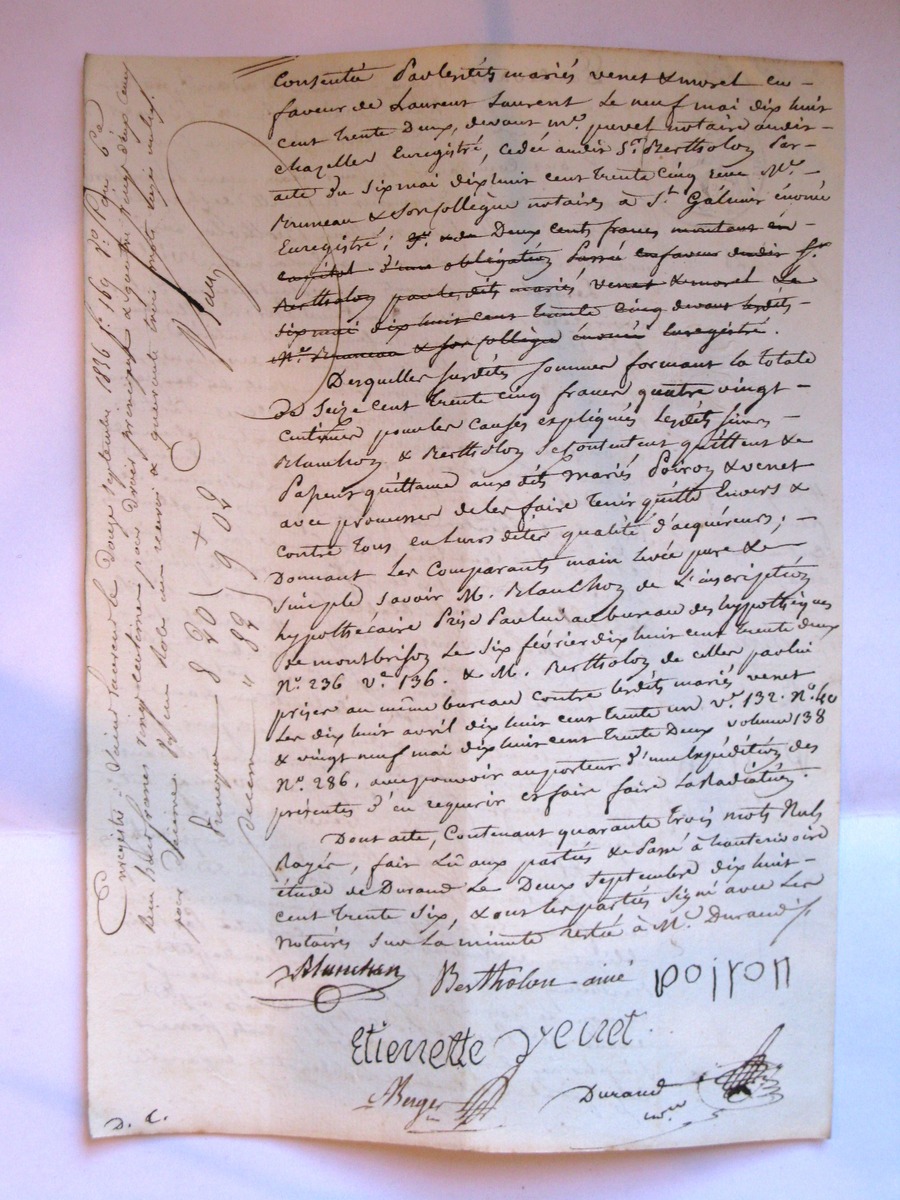 Consentie Par lesdits mariés venet & morel en
faveur de Laurent Laurent Le neuf mai dix huit
cent trente Deux, devant me. notaire audit
chazelles Enregistré, cedée audit Sr. Bertholon Par
acte du Six mai dix huit cent trente Cinq reçu Me.
Bruneau & Son Collègue notaires à St. Galmier énoncé
Enregistré; Deux cents francs montant en
capital d'une obligation Passé en faveur dudit Sr.
Bertholon par lesdits mariés venet & morel Le
dix mai dix huit cent trente Cinq devant lesdits
Me. Bruneau & Son Collègue énoncé Enregistré.
Desquelles Susdites Sommes formant la totale
de Seize Cent trente Cinq francs quatre vingt
Centimes pour les Causes expliquées Lesdits Sieurs
Blanchon & Bertholon Se Contentent quittent &
Passent quittance auxdits mariés Poiron & venet
avec promesse de les faire tenir quitte Envers &
Contre Tous en leurs dites qualité d'acquéreurs;
Donnant Les Comparants main Levée pure &
Simple Savoir M. Blanchon de L'inscription
hypothécaire Prise Par lui au bureau des hypothèques
de montbrison Le Six février dix huit cent trente deux
No. 236 ve. 136. & M. Bertholon de celles par lui
prises au même bureau Contre lesdits mariés venet
Les dix huit avril dix huit cent trente un ve. 132. No. 40
& vingt neuf mai dix huit cent trente Deux volume 138
No. 286. avec pouvoir au porteur d'une Expédition des
présentes d'en requerir & faire faire La Radiation.
Dont acte, Contenant quarante trois mots Nuls
Rayés, fait Lu aux parties & Passé à hauterivoire
étude de Durand Le Deux Septembre dix huit
cent trente Six, & ont les parties Signé avec Les
Notaires Sur La minute restée à Me. Durand
Blanchon
Bertholon ainé
poiron
Etiennette Venet
Berger
Durand
nre.
D. C.
Enregistré à Saint Laurent le Douze Septembre 1836 fo. 69 Ro.
Reçu huit francs vingt centimes pour Droit principal & quatre vingt deux
pour Decime
Principal 8 20
Decime " 82
9 02